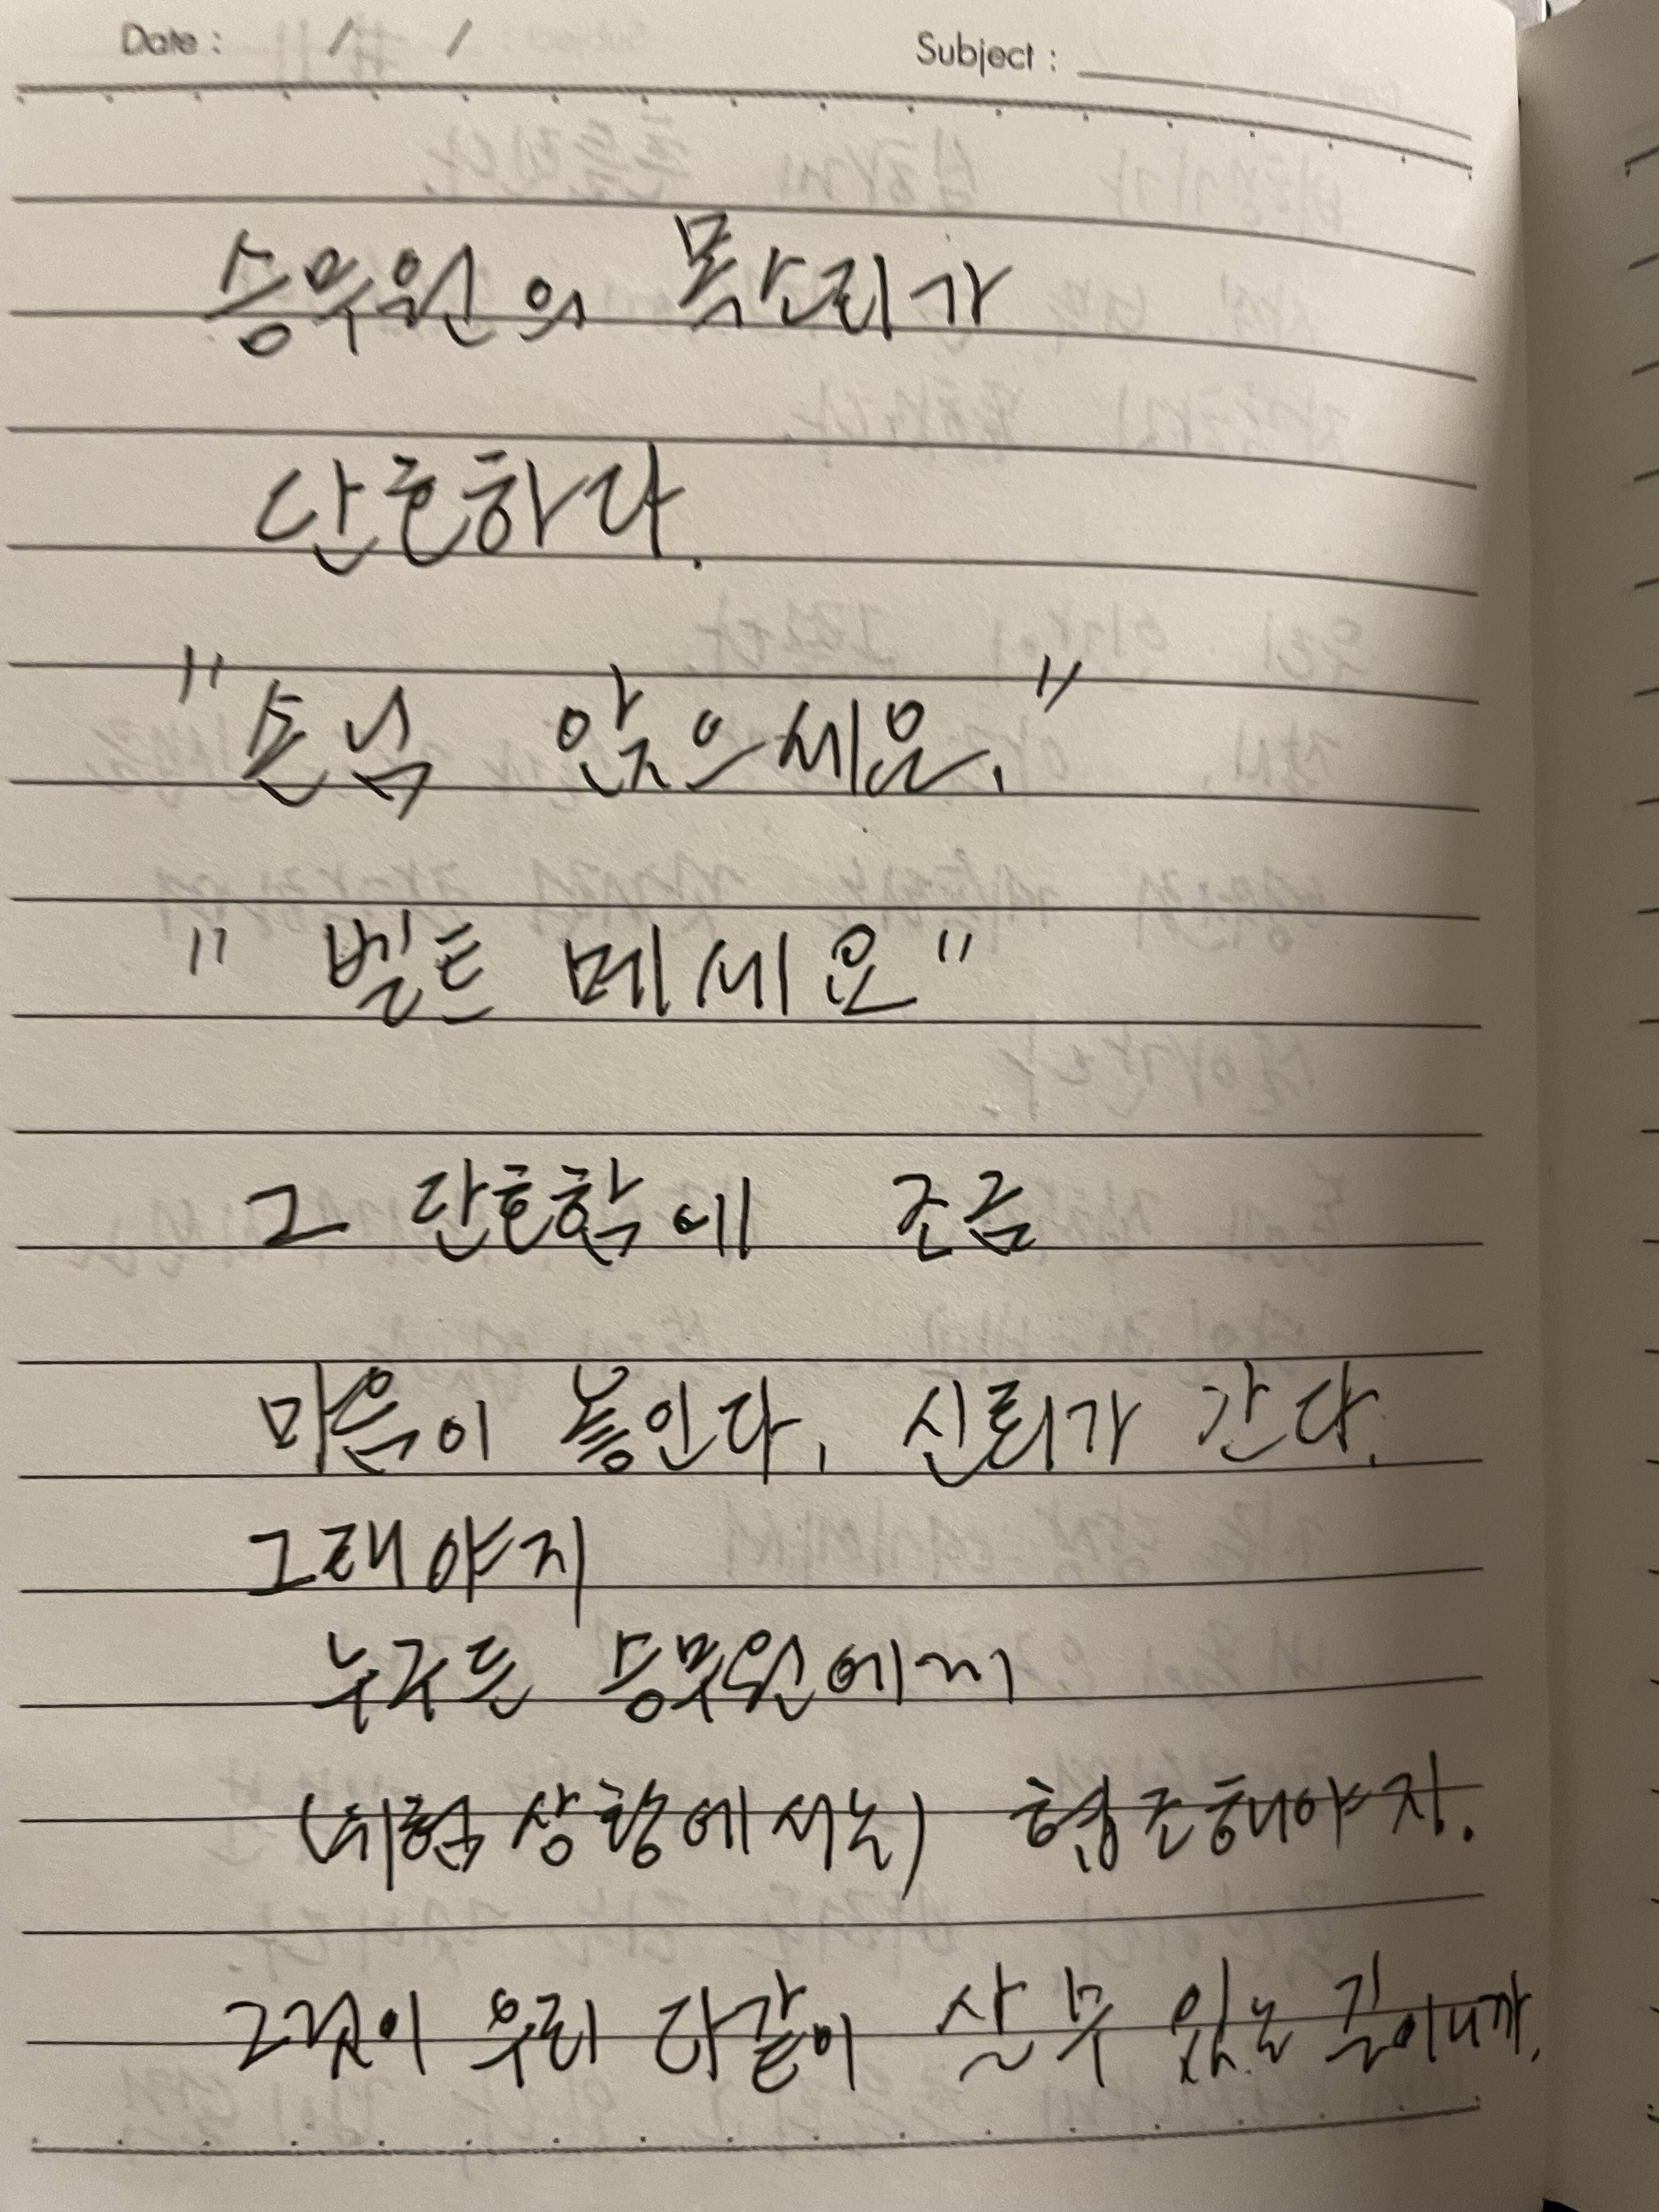 Date : / / Subject :
승무원의 목소리가
단호하다.
"손님 앉으세요."
"벨트 메세요"
그 단호함에 조금
마음이 놓인다. 신뢰가 간다.
그래야지
누구든 승무원에게
(위험상황에서는) 협조해야지.
그것이 우리 다같이 살 수 있는 길이니까.